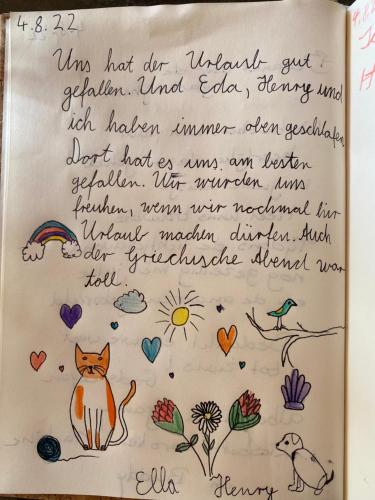 4.8.22
Uns hat der Urlaub gut
gefallen. Und Eda, Henry und
ich haben immer oben geschlafen.
Dort hat es uns am besten
gefallen. Wir würden uns
freuhen, wenn wir nochmal hir
Urlaub machen dürfen. Auch
der Griechische Abend war
toll.
Ella Henry